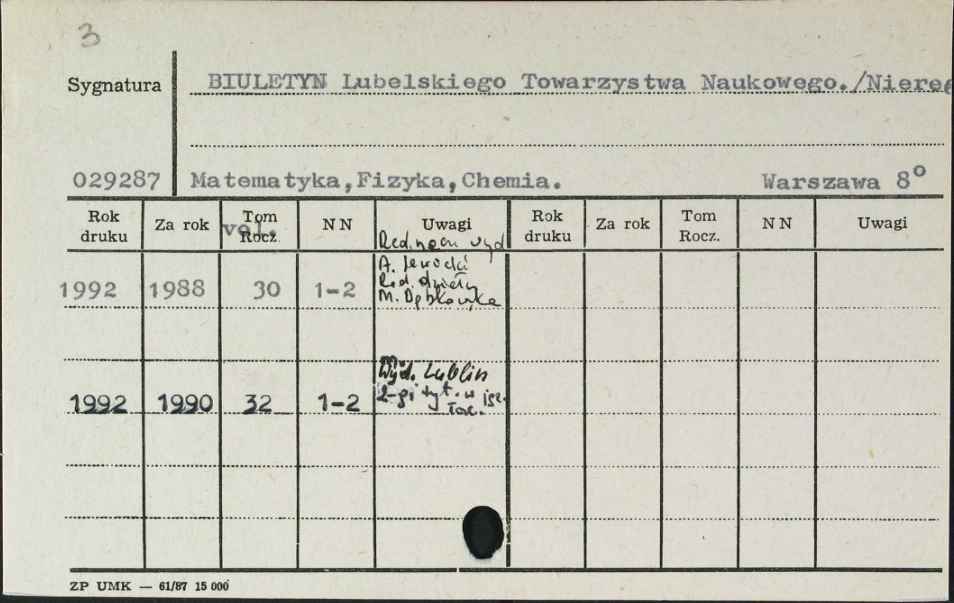 3
Sygnatura BIULETYN Lubelskiego Towarzystwa Naukowego./Niereg
029287 Matematyka,Fizyka,Chemia. Warszawa 8°
Rok druku Za rok Tom Rocz. vol. NN Uwagi Rok druku Za rok Tom Rocz. NN Uwagi
Red. nacz. wyd
A.
1992 1988 30 1-2 Red. działu
M.
Wyd. Lublin
1992 1990 32 1-2 2-gi tyt. w jęz.
łac.
ZP UMK — 61/87 15 000